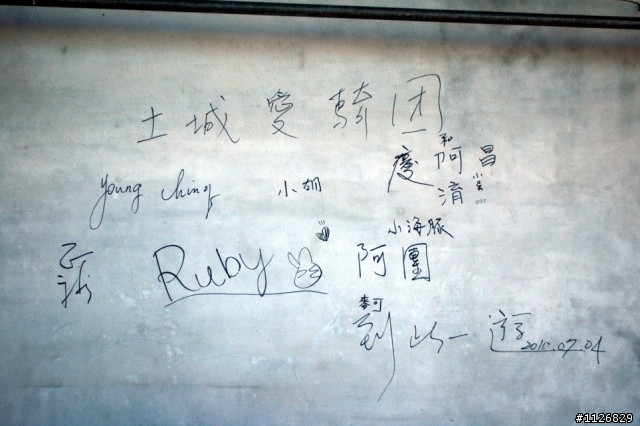 土城愛騎团
一慶
和
阿淯
昌
young ching
小胡
小海豚
阿團
Ruby
麥可
到此一遊
2010.07.04
#1126829